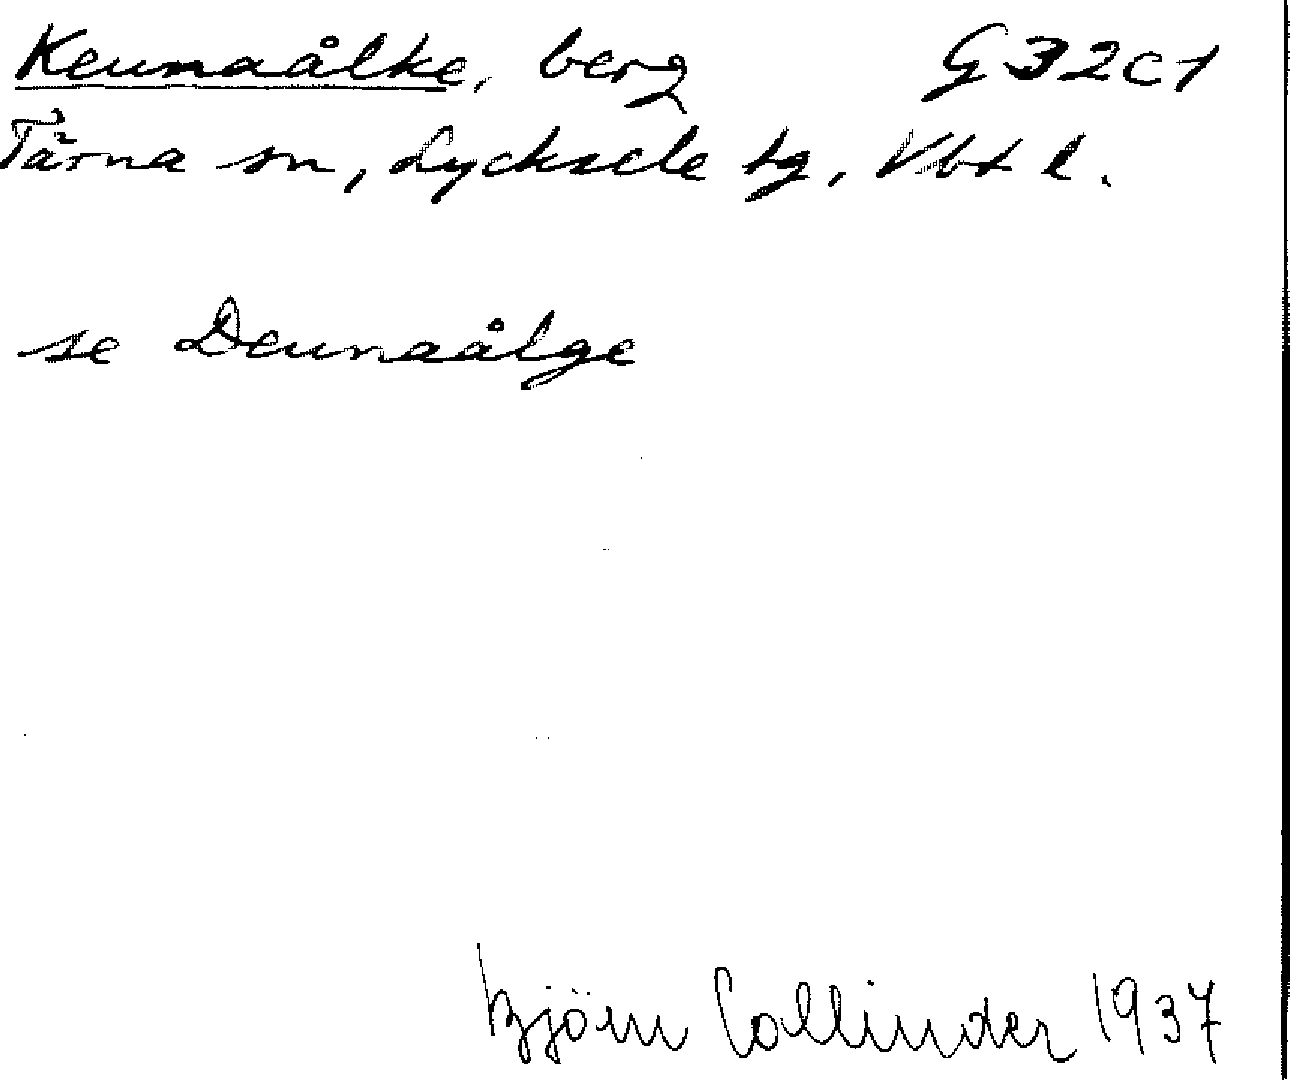 Keunaålke, berg G 32c1
Tärna sn, Lycksele tg, Vbt l.
se Deunaålge
Björn Collinder 1937